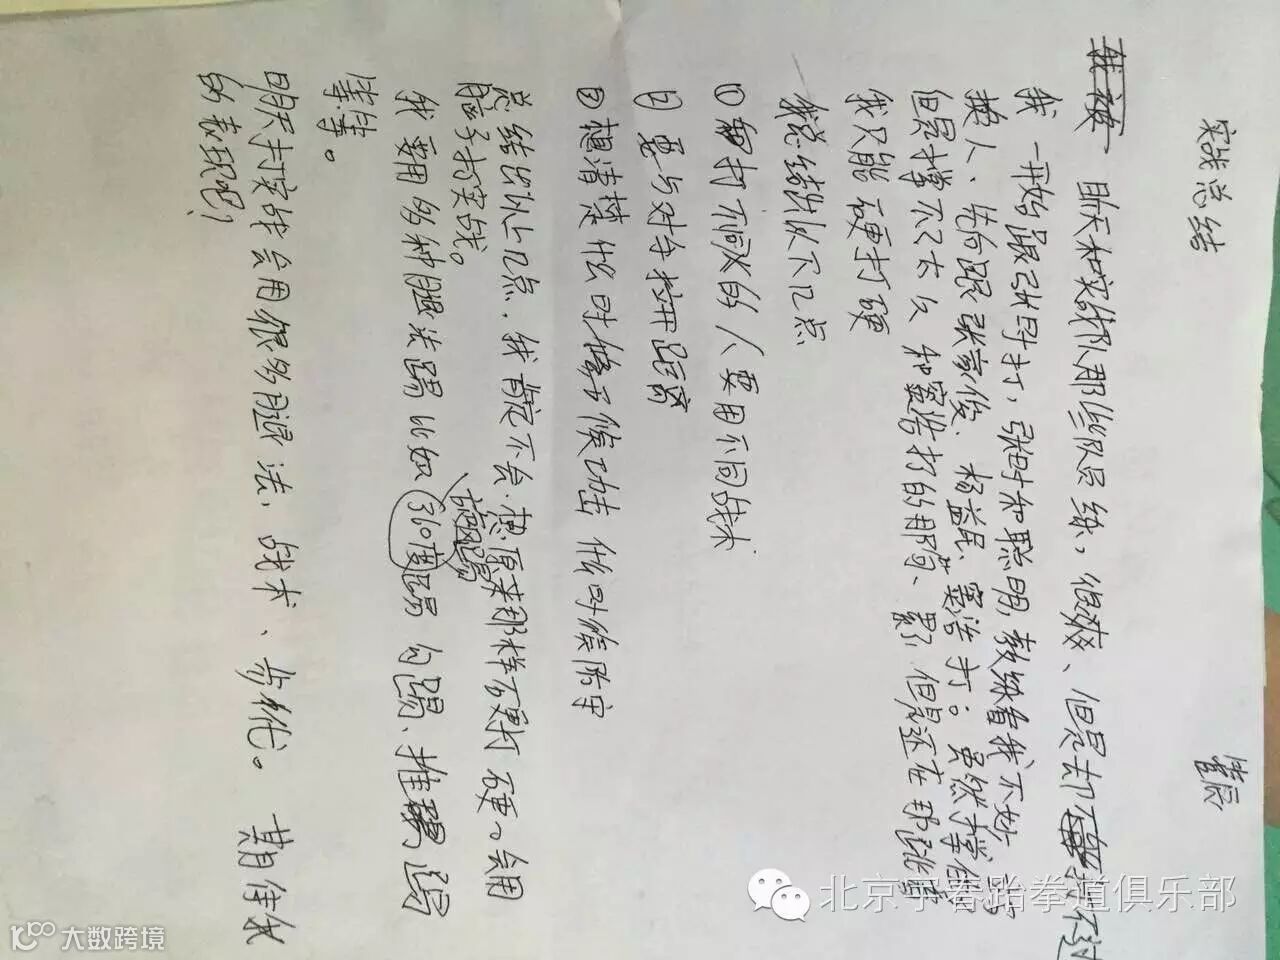 实战总结
管辰
昨天和实战队那些队员练，很爽、但是却打不过
我一开始跟张时打，张时和聪明 教练看我不妙
换人、先后跟张家俊、杨益民、窦浩打。虽然撑
但是撑不了太久 和窦浩打的那阵、累 但是还在那
我只能硬打硬
我总结出以下几点
① 和打不同的人要用不同战术
② 要与对手拉开距离
③ 想清楚什么时候进攻 什么时候防守
总结出以上几点，我肯定不会 想原来那样硬打硬，会用
脑子打实战。
我要用多种腿法踢 比如 360度踢 勾踢、推踢
旋风踢
等等。
明天打实战会用很多腿法，战术、步伐。期待我
的表现吧！
北京宇春跆拳道俱乐部
大数跨境